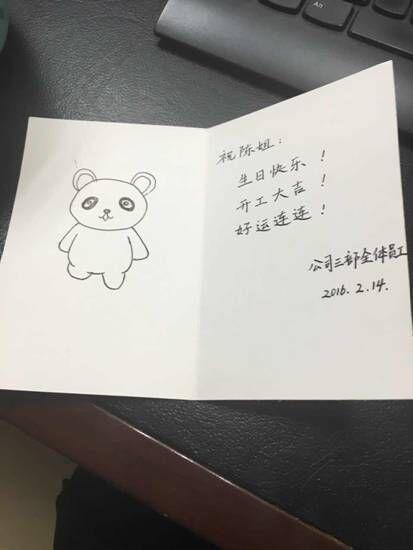 祝陈姐：
生日快乐！
开工大吉！
好运连连！
公司三部全体员工
2016.2.14.